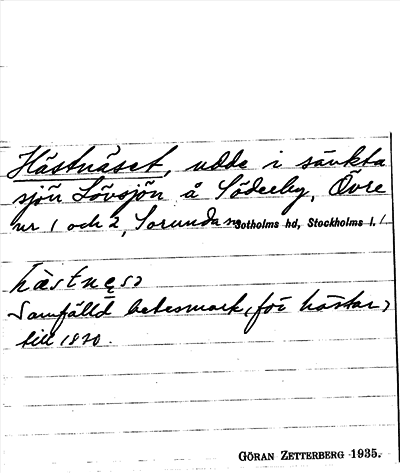 Hästnäset, udde i sänkta
sjön Lövsjön å Söderby, Övre
nr 1 och 2, Sorunda sn Sotholms hd, Stockholms l.
hästnęsə
Samfälld betesmark (för hästar)
till 1870.
GÖRAN ZETTERBERG 1935.